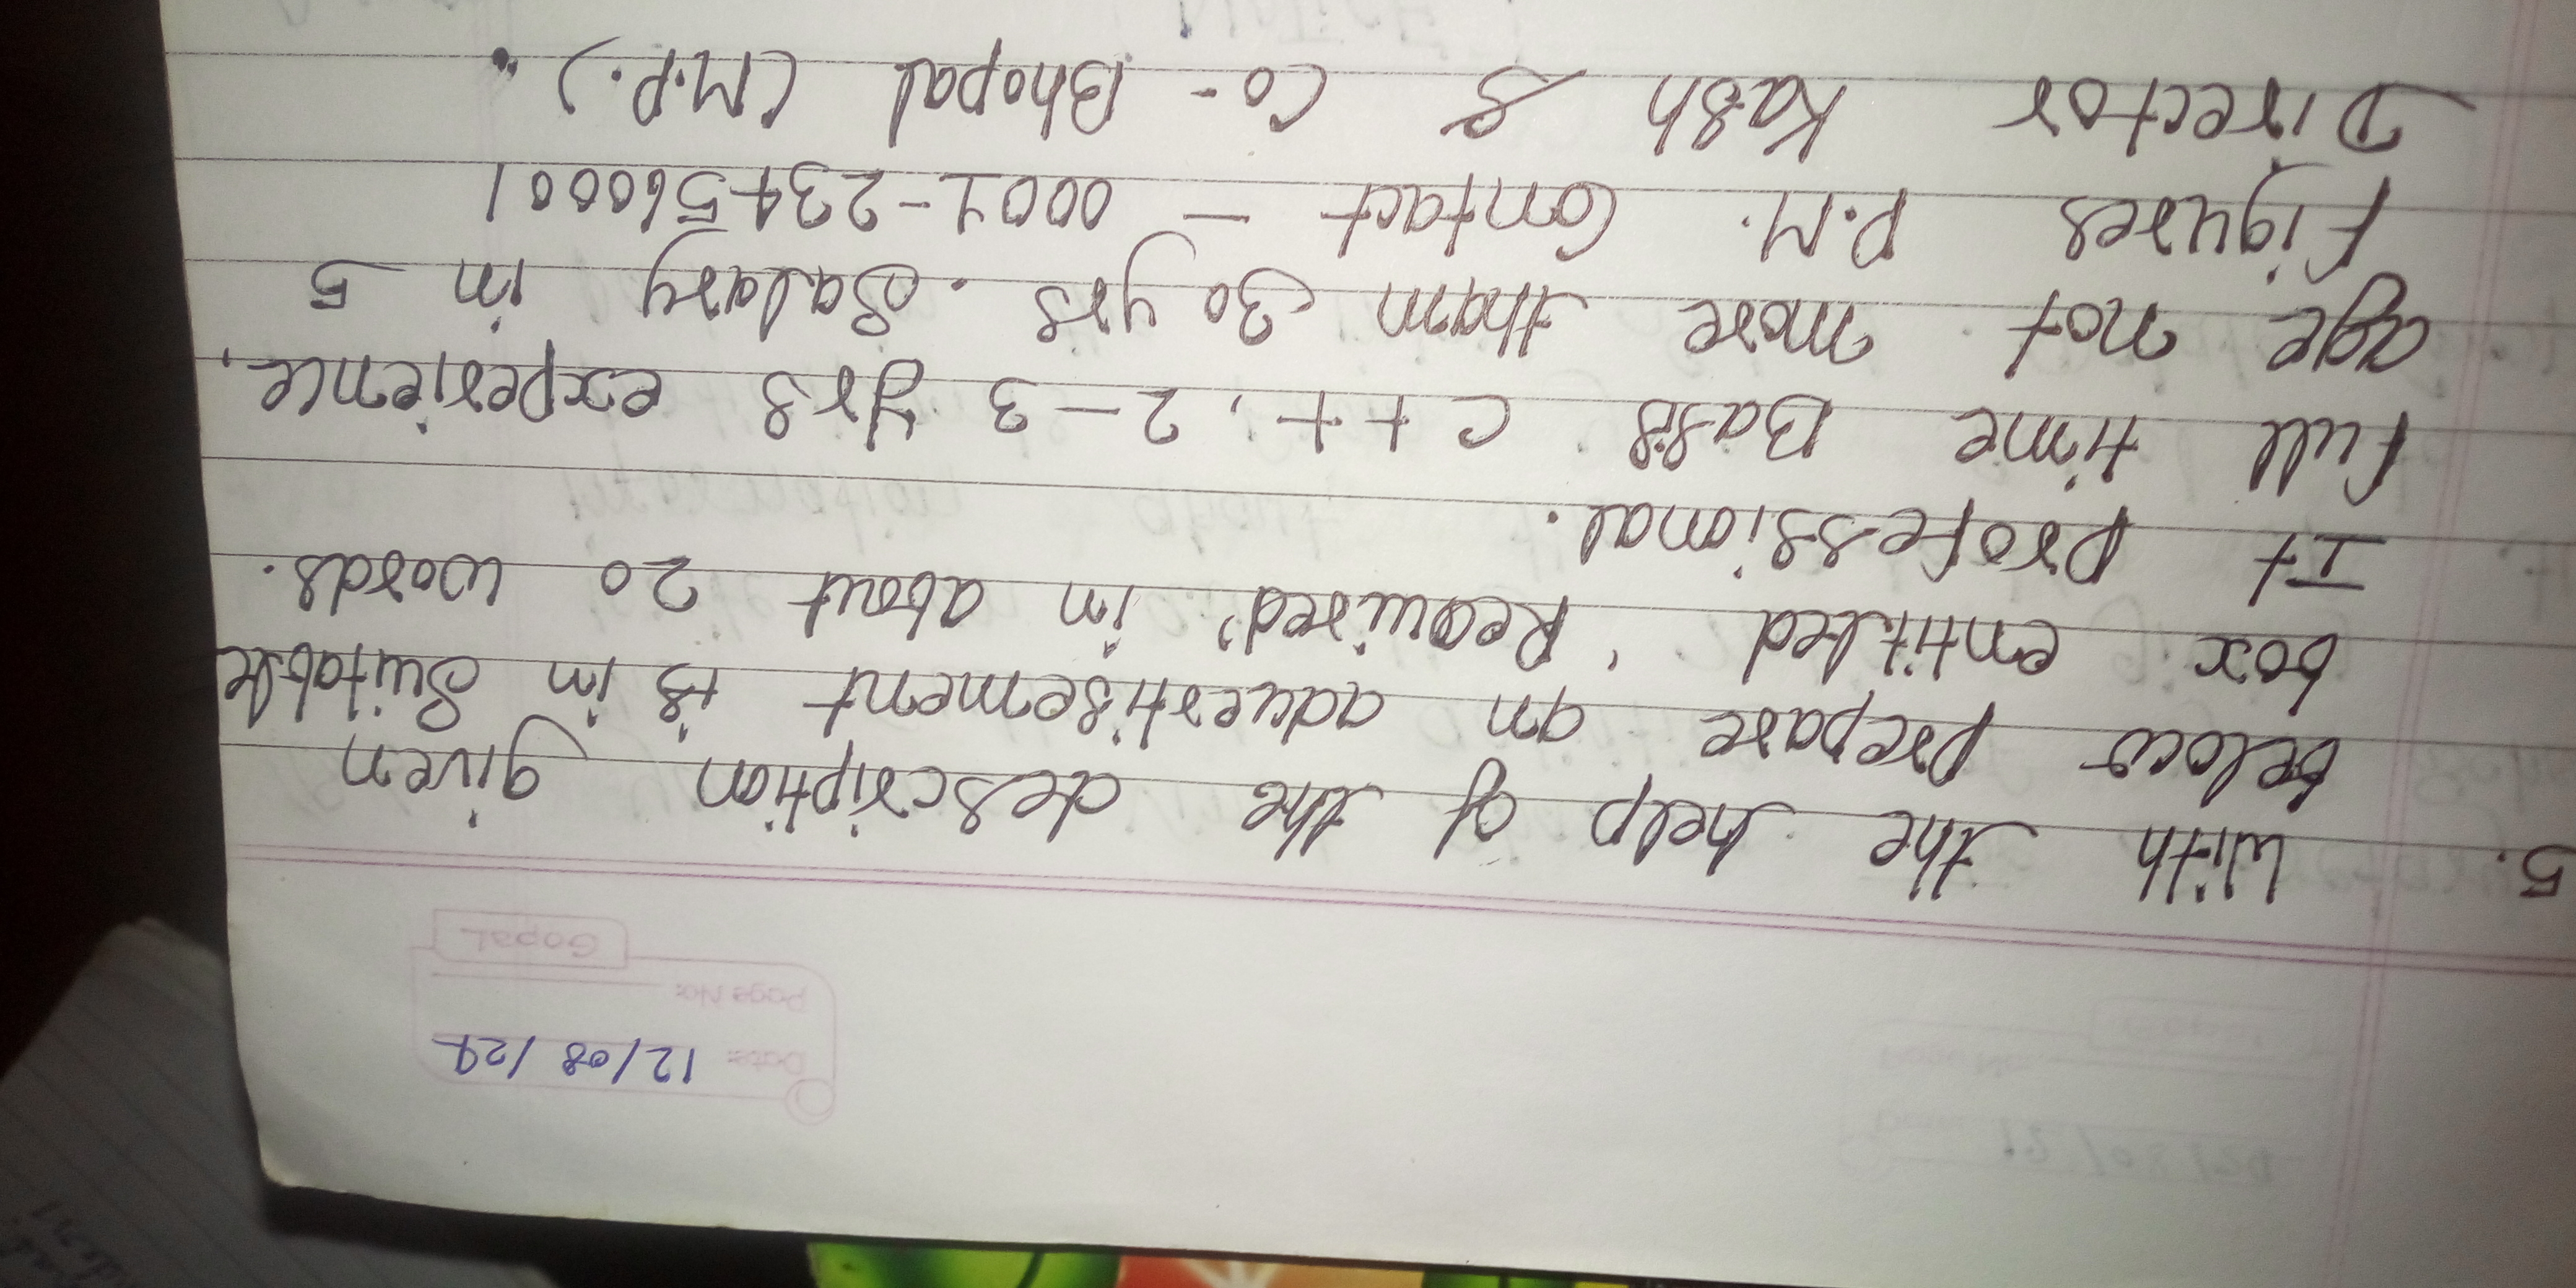 Date: 12/08/24
Page No:
Gopal
5. With the help of the description given
below prepare an advertisement is in suitable
box entitled 'Required' in about 20 words.
It professional.
Full time Basis C++, 2-3 yrs experience,
age not more than 30 yrs. Salary in 5
Figures P.M. Contact - 0001-234560001
Director Kash & Co- Bhopal (M.P.).